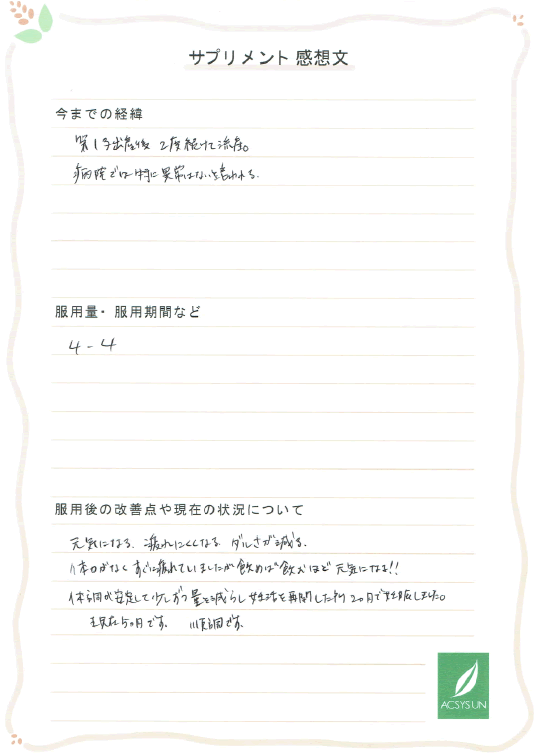 サプリメント 感想文
今までの経緯
第1子出産後 2度続けて流産。
病院では特に異常はないと言われる。
服用量・服用期間など
4-4
服用後の改善点や現在の状況について
元気になる。疲れにくくなる。ダルさが減る。
体力がなくすぐに疲れていましたが飲めば飲むほど元気になる!!
体調が安定して少しずつ量を減らし妊活を再開した所2ヶ月で妊娠しました。
現在5ヶ月です。 順調です。
ACSYSUN